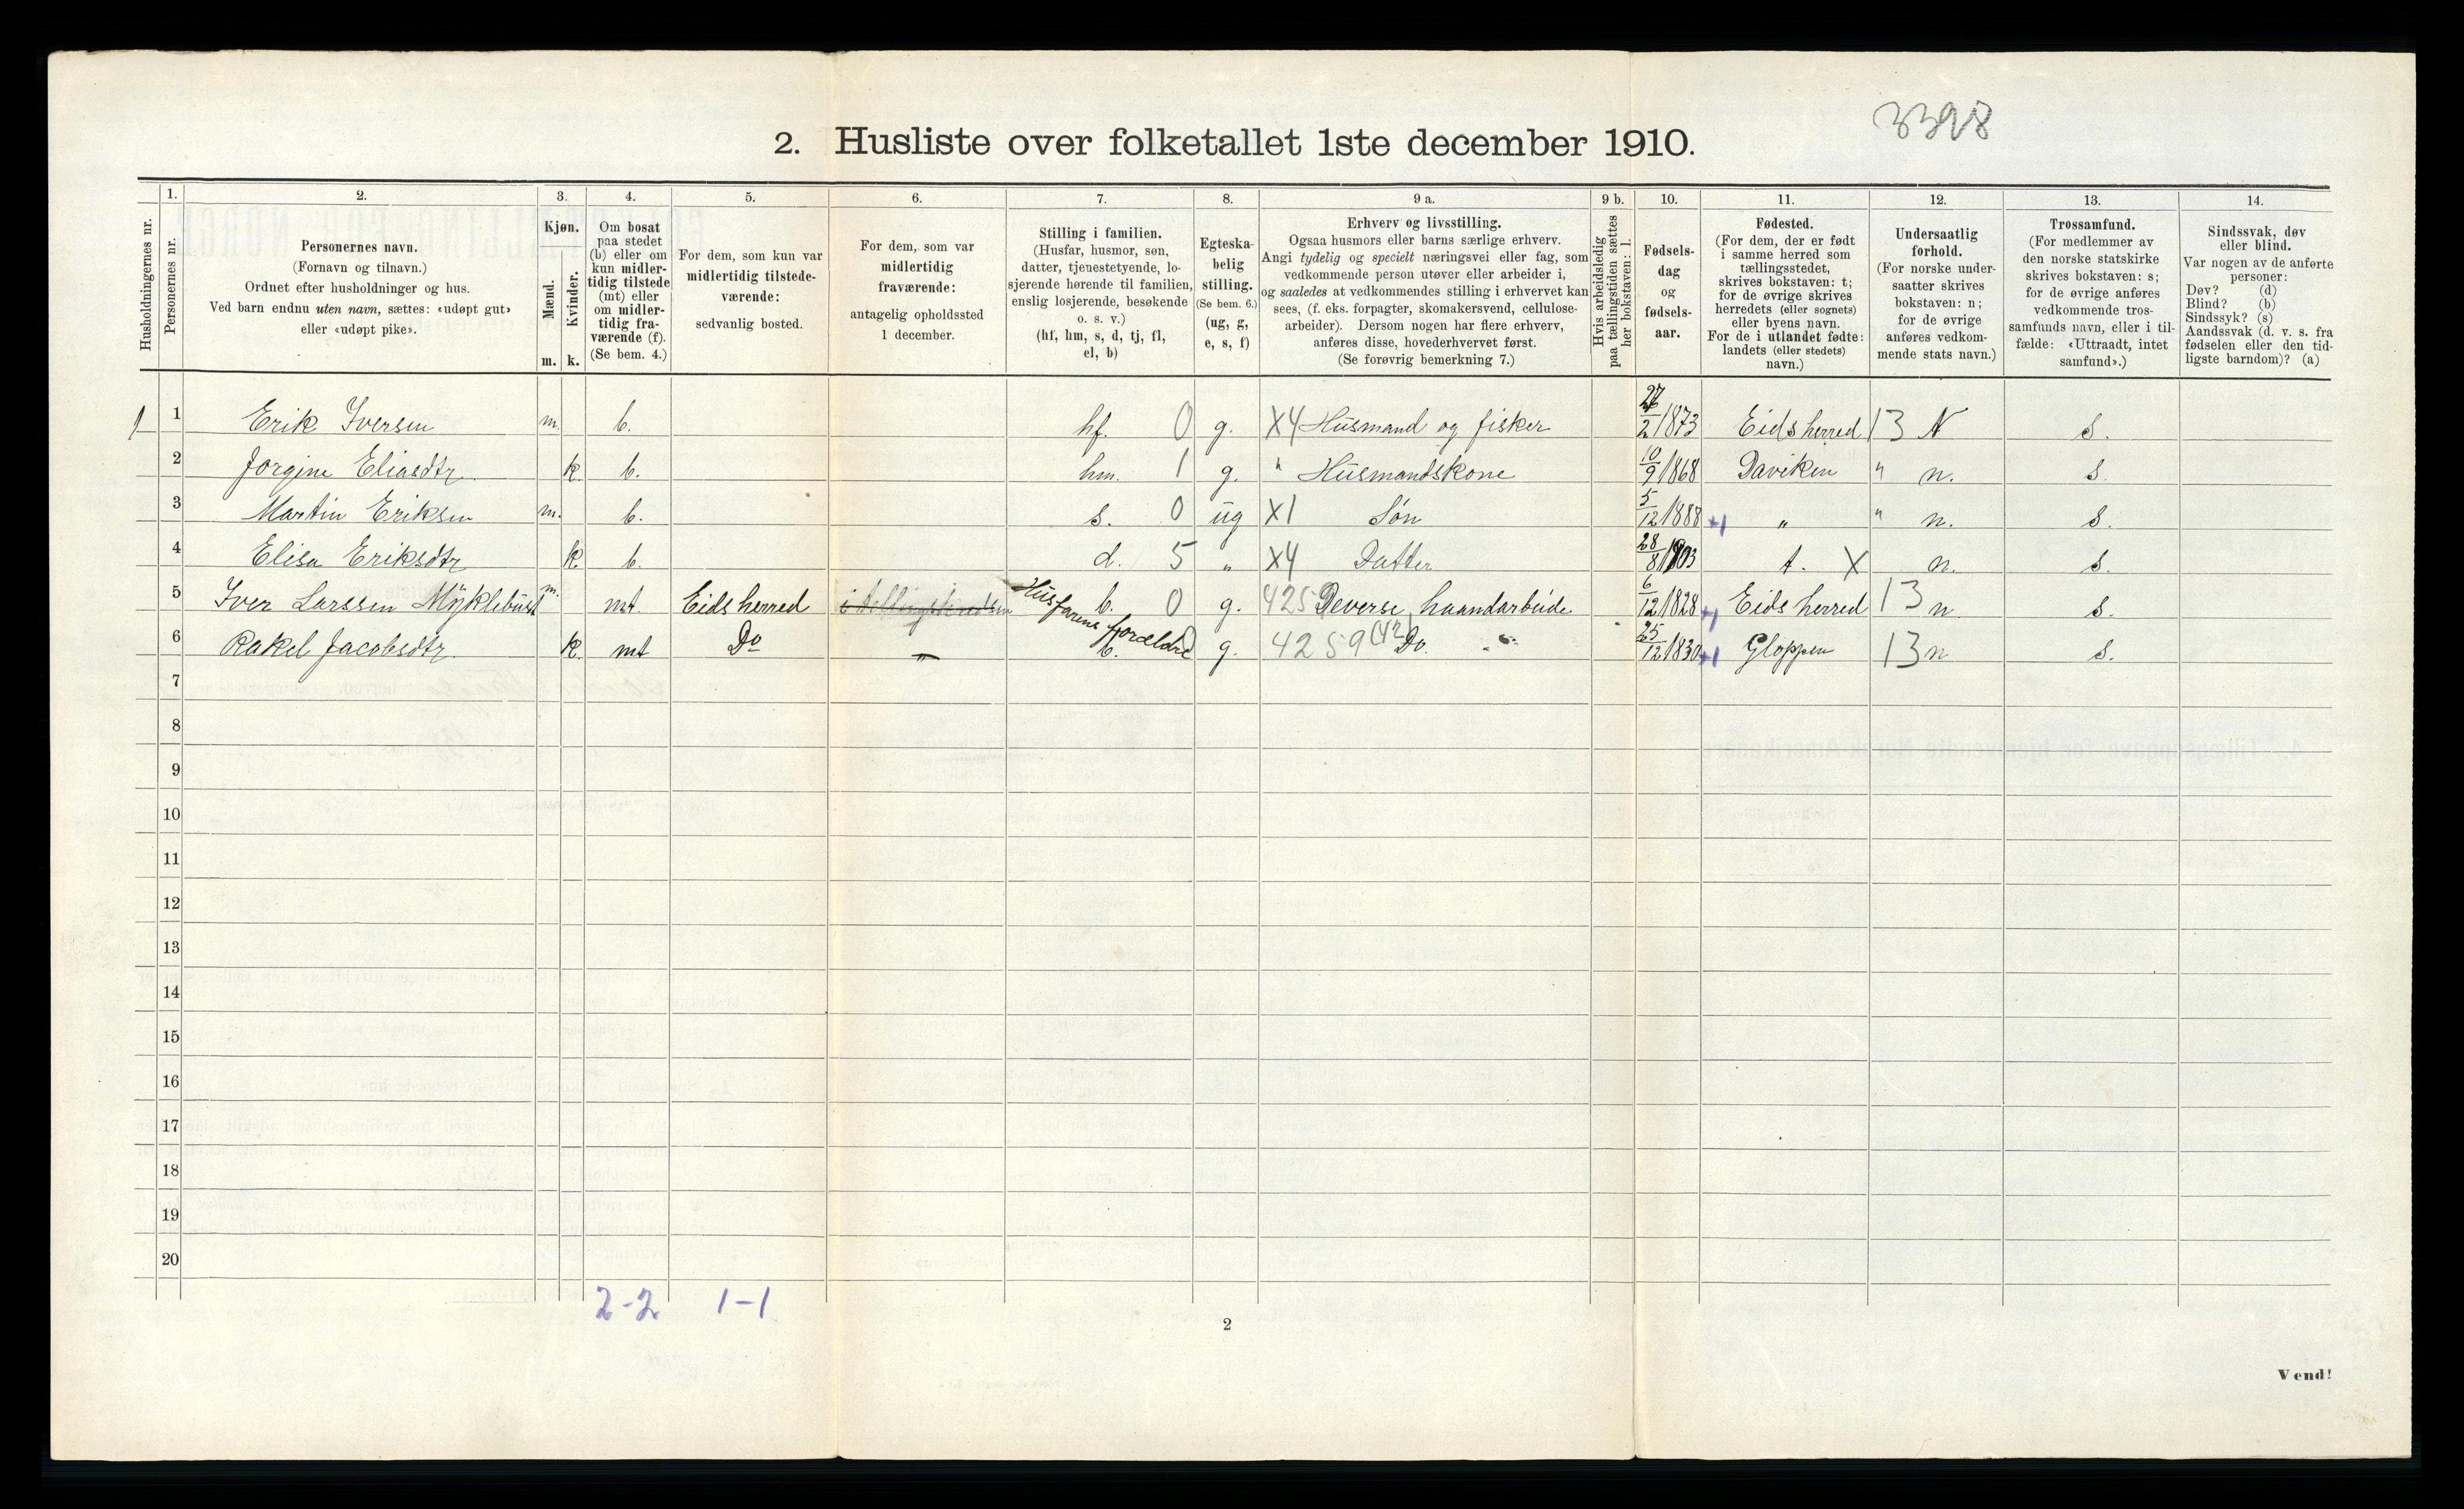 3398
2. Husliste over folketallet 1ste december 1910.
Husholdningernes nr.
1.
Personernes nr.
2.
Personernes navn.
(Fornavn og tilnavn.)
Ordnet efter husholdninger og hus.
Ved barn endnu uten navn, sættes: «udøpt gut»
eller «udøpt pike».
3.
Kjøn.
Mænd.
Kvinder.
m. k.
4.
Om bosat
paa stedet
(b) eller om
kun midler-
tidig tilstede
(mt) eller
om midler-
tidig fra-
værende (f).
(Se bem. 4.)
5.
For dem, som kun var
midlertidig tilstede-
værende:
sedvanlig bosted.
6.
For dem, som var
midlertidig
fraværende:
antagelig opholdssted
1 december.
7.
Stilling i familien.
(Husfar, husmor, søn,
datter, tjenestetyende, lo-
sjerende hørende til familien,
enslig losjerende, besøkende
o. s. v.)
(hf, hm, s, d, tj, fl,
el, b)
8.
Egteska-
belig
stilling.
(Se bem. 6.)
(ug, g,
e, s, f)
9 a.
Erhverv og livsstilling.
Ogsaa husmors eller barns særlige erhverv.
Angi tydelig og specielt næringsvei eller fag, som
vedkommende person utøver eller arbeider i,
og saaledes at vedkommendes stilling i erhvervet kan
sees, (f. eks. forpagter, skomakersvend, cellulose-
arbeider). Dersom nogen har flere erhverv,
anføres disse, hovederhvervet først.
(Se forøvrig bemerkning 7.)
9 b.
Hvis arbeidsledig
paa tællingstiden sættes
her bokstaven: l.
10.
Fødsels-
dag
og
fødsels-
aar.
11.
Fødested.
(For dem, der er født
i samme herred som
tællingsstedet,
skrives bokstaven: t;
for de øvrige skrives
herredets (eller sognets)
eller byens navn.
For de i utlandet fødte:
landets (eller stedets)
navn.)
12.
Undersaatlig
forhold.
(For norske under-
saatter skrives
bokstaven: n;
for de øvrige
anføres vedkom-
mende stats navn.)
13.
Trossamfund.
(For medlemmer av
den norske statskirke
skrives bokstaven: s;
for de øvrige anføres
vedkommende tros-
samfunds navn, eller i til-
fælde: «Uttraadt, intet
samfund».)
14.
Sindssvak, døv
eller blind.
Var nogen av de anførte
personer:
Døv? (d)
Blind? (b)
Sindssyk? (s)
Aandssvak (d. v. s. fra
fødselen eller den tid-
ligste barndom)? (a)
1 1 Erik Iversen m. b. hf. 0 g. X4 Husmand og fisker 27/2 1873 Eids herred 13 N s.
2 Jorgine Eliasdtr. k. b. hm. 1 g. " Husmandskone 10/9 1868 Daviken " n. s.
3 Martin Eriksen m. b. s. 0 ug X1 Søn 5/12 1888 +1 " " n. s.
4 Elisa Eriksdtr k. b. d. 5 " X4 Datter 28/8 1903 t. X n. s.
5 Iver Larssen Myklebust m. mt. Eids herred Husfarens forældre b. 0 g. 4259 Deverse haandarbeide 6/12 1828 +1 Eids herred 13 n. s.
6 Rakel Jacobsdtr. k. mt Do " b. 0 g. 4259 (42) Do. 25/12 1830 +1 Gloppen 13 n s.
7
8
9
10
11
12
13
14
15
16
17
18
19
20
2-2 1-1
2
Vend!